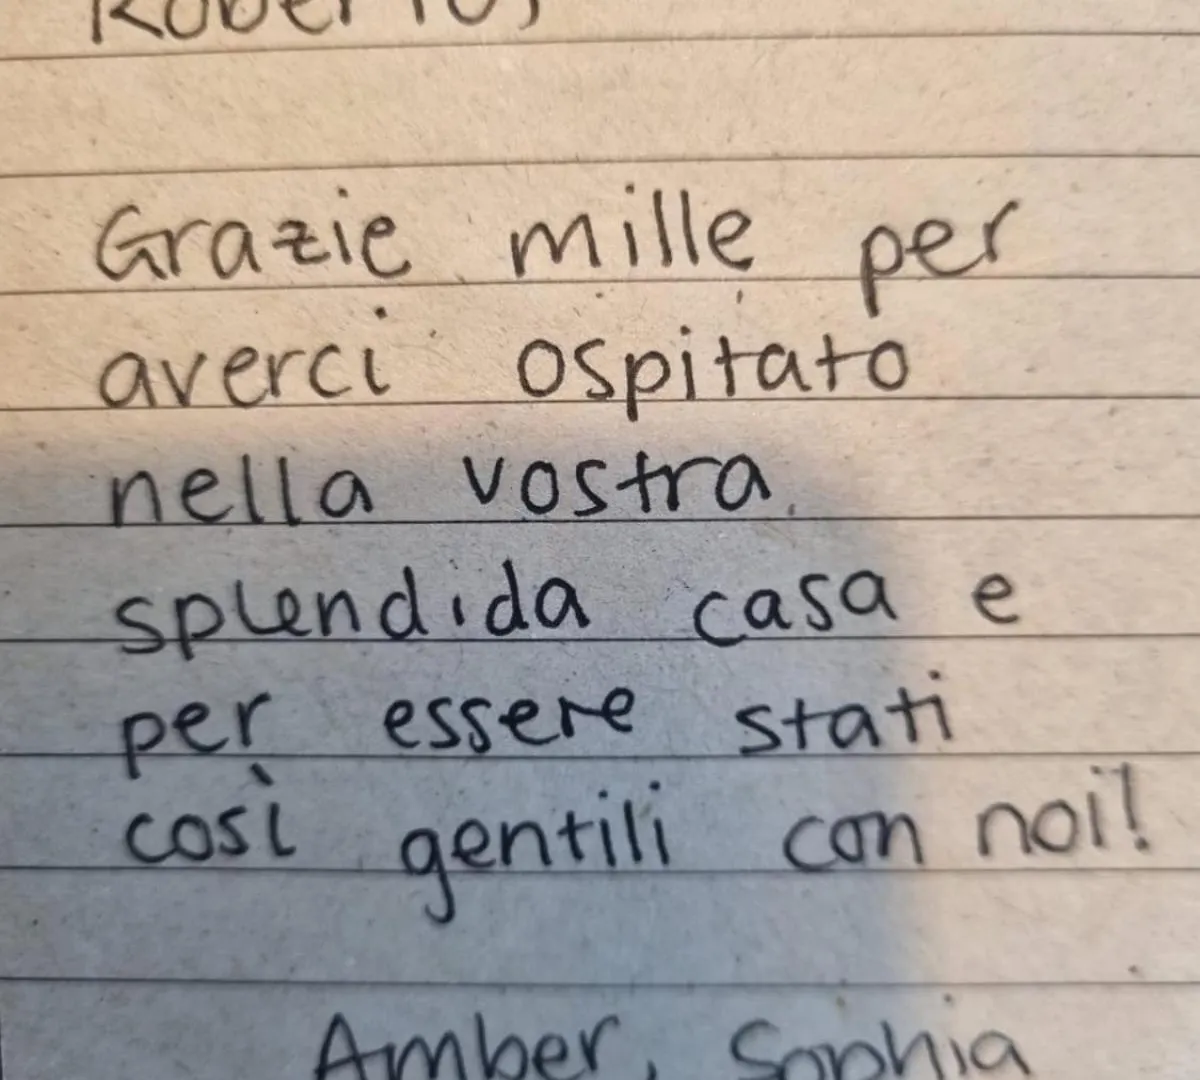 Roberto,
Grazie mille per
averci ospitato
nella vostra
splendida casa e
per essere stati
così gentili con noi!
Amber, Sophia